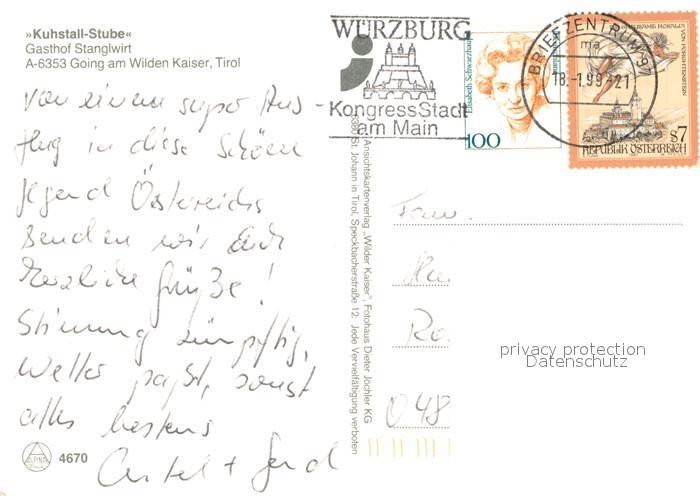 »Kuhstall-Stube«
Gasthof Stanglwirt
A-6353 Going am Wilden Kaiser, Tirol
von einem super Aus-
flug in diese schöne
Gegend Österreichs
senden wir Euch
herzliche Grüße!
Stimmung zünftig,
Wetter paßt, sonst
alles bestens
4670
Ansichtskartenverlag „Wilder Kaiser", Fotohaus Dieter Jöchler KG
St. Johann in Tirol, Speckbacherstraße 12. Jede Vervielfältigung verboten
WÜRZBURG
KongressStadt
am Main
Elisabeth Schwarzhaupt
100
BRIEFZENTRUM 97
ma
18.-1.99-21
REPUBLIK ÖSTERREICH
S7
Fam.
Ro.
048
privacy protection
Datenschutz